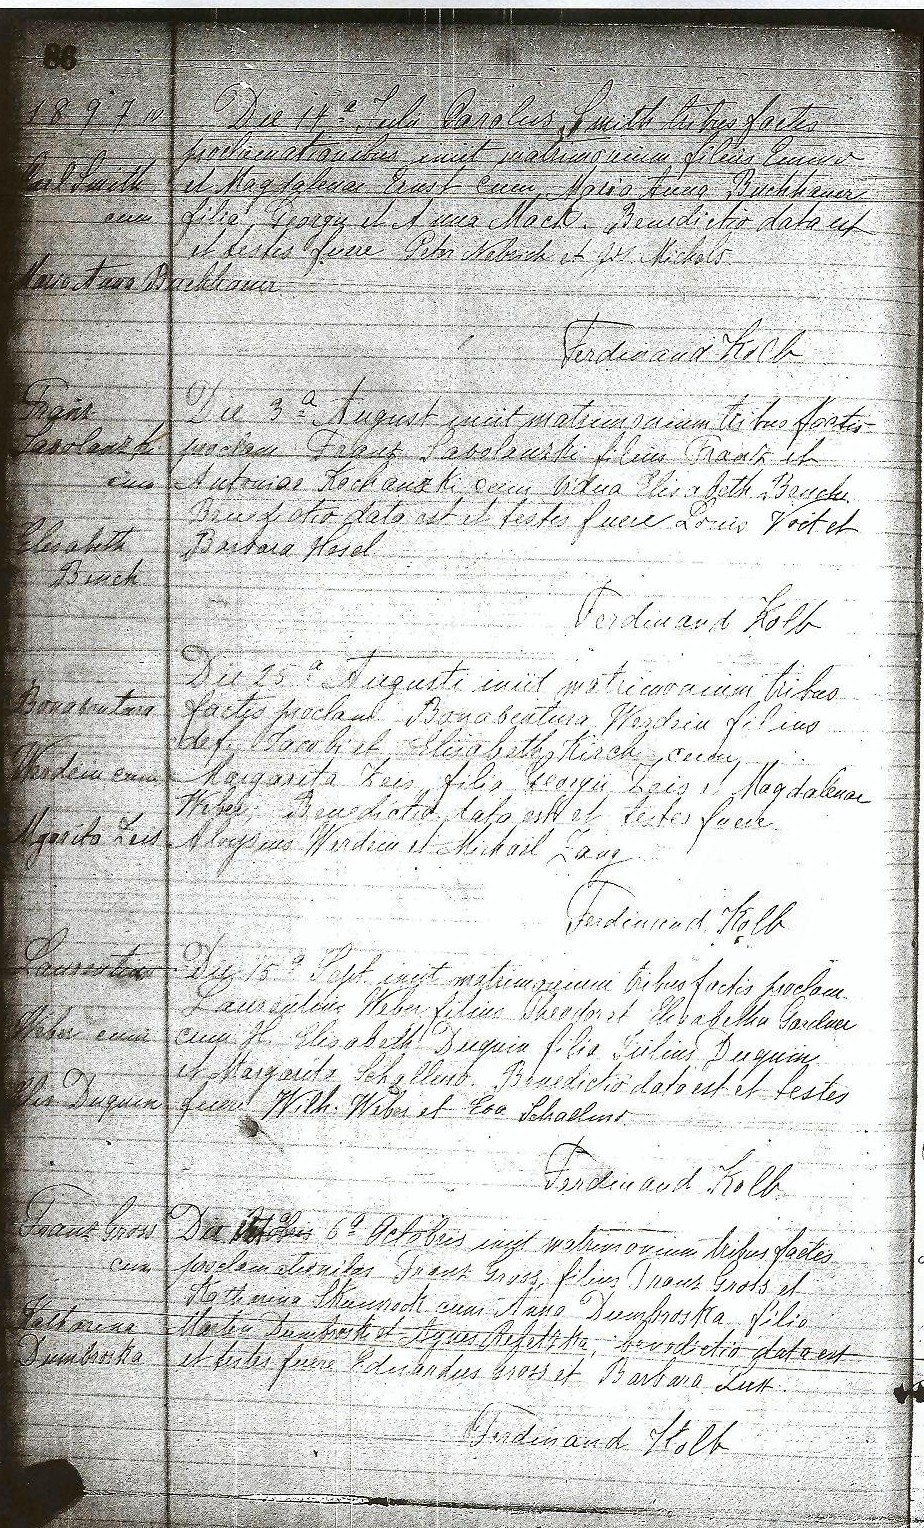 86
1897
Die 14a Julii Carolus Smith tribus factis
proclamationibus iniit matrimonium filius
Carl Smith
et Magdalenae Ernst cum Maria Anna Buchhauer
cum
filia Georgii et Anna Mack. Benedictio data est
et testes fuere Peter et Michels
Maria Anna Buchhauer
Ferdinand Kolb
Franz
Die 3a August iniit matrimonium tribus factis
proclam Franz filius Franz et
cum
Antoniae Kochanski cum vidua Elisabeth
Benedictio data est et testes fuere Louis Voit et
Elisabeth
Barbara Hasel
Ferdinand Kolb
Die 25a Augusti iniit matrimonium tribus
Bonabentura
factis proclam Bonabentura Werdein filius
def. Jacobi et Elisabeth Kirch cum
Werdein cum
Margarita Zeis filia Georgii Zeis et Magdalenae
Weber. Benedictio data est et testes fuere
Mgarita Zeis
Aloysius Werdein et Michael Zang
Ferdinand Kolb
Die 15a Sept iniit matrimonium tribus factis proclam
Laurentius
Laurentius Weber filius Theodor et Elisabetha Gardner
Weber cum
cum H. Elisabeth Duquin filia Julius Duquin
et Margarita Benedictio data est et testes
Duquin
fuere Wilh. Weber et Eva
Ferdinand Kolb
Franz Gross
Die 6a Octobris iniit matrimonium tribus factis
cum
proclamationibus Franz Gross, filius Franz Gross et
Katharina cum Anna Dumbroska filia
Katharina
Martin Dumbroski et Agnes benedictio data est
Dumbroska
et testes fuere Eduardus Gross et Barbara Lux.
Ferdinand Kolb